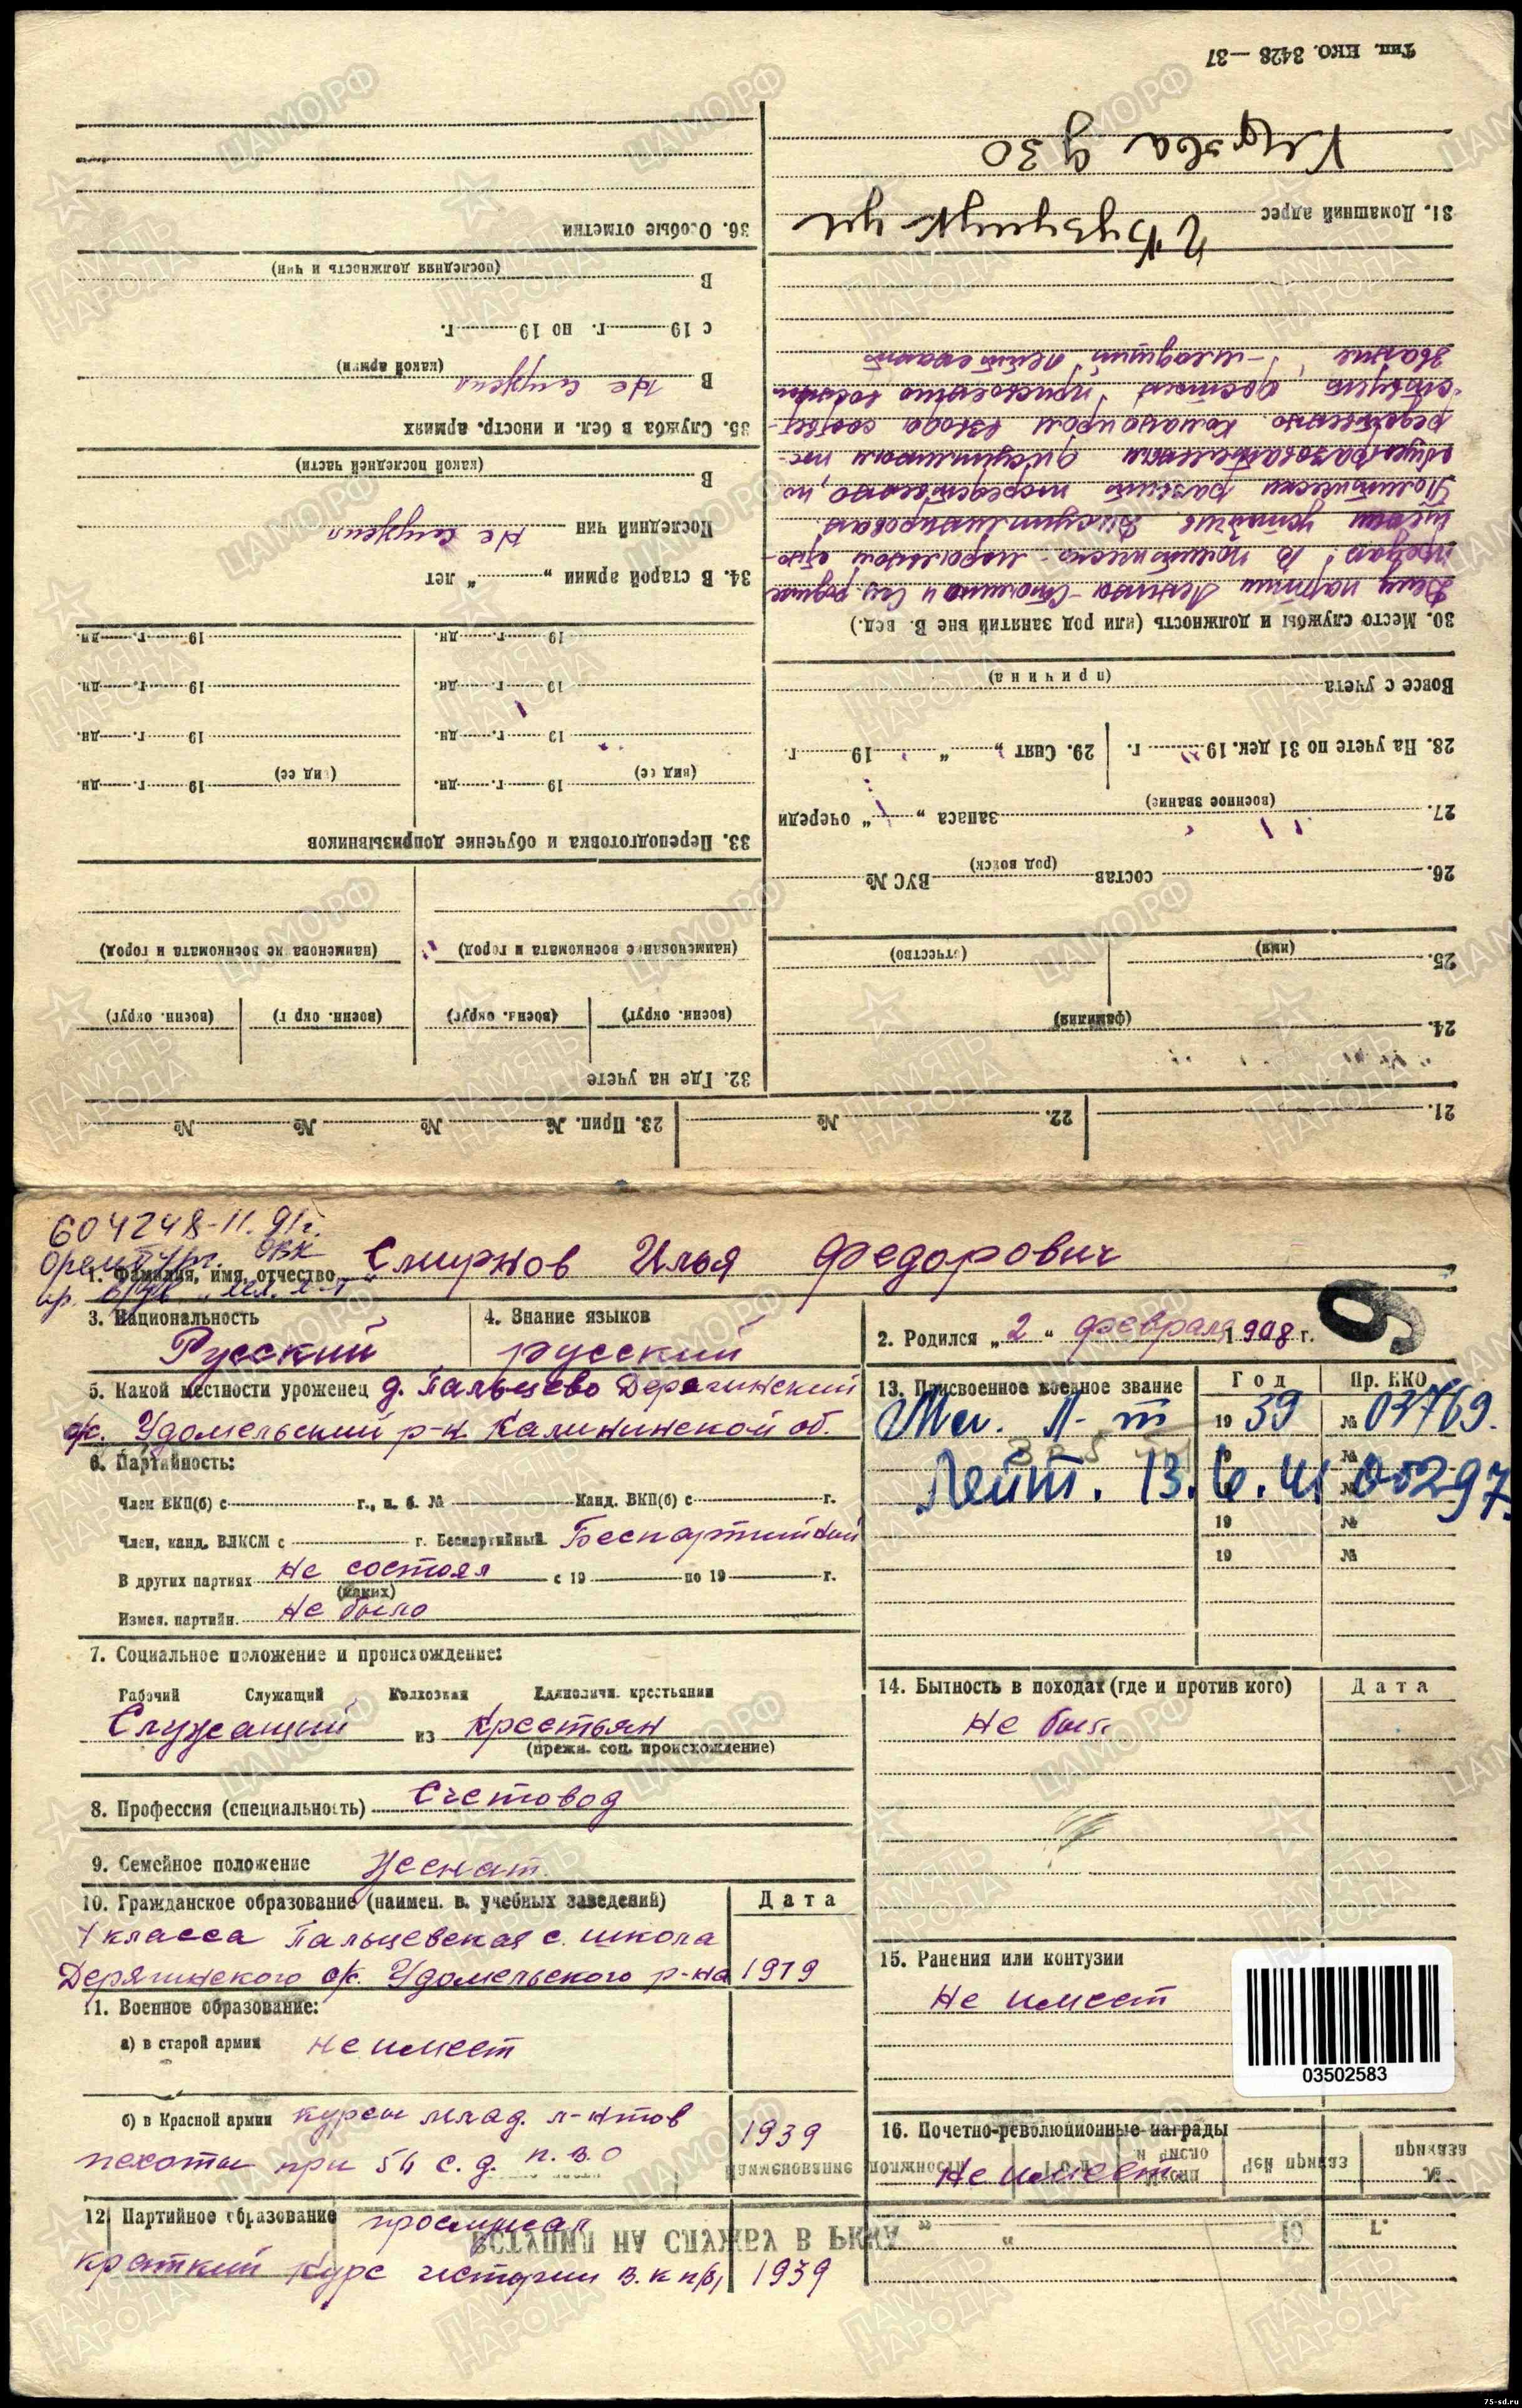 604248-11.91г.
Оренбург. ОВК
1. Фамилия, имя, отчество Смирнов Илья Федорович
3. Национальность
Русский
4. Знание языков
русский
2. Родился „2“ февраля 1908 г.
9
5. Какой местности уроженец д. Пальцево Дерягинский
с/с. Удомельский р-н. Калининской об.
6. Партийность:
Член ВКП(б) с г., п. б. № Канд. ВКП(б) с г.
Член, канд. ВЛКСМ с г. Беспартийный Беспартийный
В других партиях Не состоял с 19 по 19 г.
(каких)
Измен. партийн. Не было
7. Социальное положение и происхождение:
Рабочий Служащий Колхозник Единоличн. крестьянин
Служащий из крестьян
(прежн. соц. происхождение)
8. Профессия (специальность) Счетовод
9. Семейное положение женат.
10. Гражданское образование (наимен. в. учебных заведений) Дата
4 класса Пальцевская с. школа
Дерягинского с/с. Удомельского р-на 1919
11. Военное образование:
а) в старой армии не имеет
б) в Красной армии курсы млад. л-нтов 1939
пехоты при 54 с. д. п. в. о
12. Партийное образование прослушал
краткий курс истории В.К.П(б) 1939
13. Присвоенное военное звание Год Пр. НКО
Мл. Л-т 19 39 № 03769.
Лейт. 13.6.41 00297.
19 №
19 №
14. Бытность в походах (где и против кого) Дата
Не был
15. Ранения или контузии
Не имеет
03502583
16. Почетно-революционные награды
Не имеет
наименование должности
Чей приказ
№ приказа
ВСТУПИЛ НА СЛУЖБУ В РККА
21. 22. № 23. Прип. № № № №
24.
(фамилия)
25.
(имя) (отчество)
26. состав (род войск) ВУС №
27. (военное звание) запаса „ “ очереди
28. На учете по 31 дек. 19 г. 29. Снят „ “ 19 г.
Вовсе с учета
(причина)
30. Место службы и должность (или род занятий вне В. вед.)
Делу партии Ленина-Сталина и соц. родине
предан! В политически-моральном отно-
шении устойчив. Дисциплинирован.
Политически развит посредственно, по
общеобразовательным дисциплинам пос-
редственно. Командиром взвода соответ-
ствует достоин присвоению
звание „младший лейтенант
31. Домашний адрес г Бузулук ул
Кирова д 30
32. Где на учете
(военн. округ) (военн. округ) (военн. окр г) (военн. округ)
(наименование военкомата и город) (наименова ие военкомата и город)
33. Переподготовка и обучение допризывников
(вид сб) 19 г. дн. (вид сб) 19 г. дн.
19 г. дн. 19 г. дн.
19 г. дн. 19 г. дн.
19 г. дн. 19 г. дн.
34. В старой армии „ “ лет
Последний чин не служил
В
(какой последней части)
35. Служба в бел. и иностр. армиях
В не служил
(какой армии)
с 19 г. по 19 г.
В
(последняя должность и чин)
36. Особые отметки
Тип. НКО. 3428—37
ПАМЯТЬ НАРОДА
ЦАМО.РФ
75-sd.ru